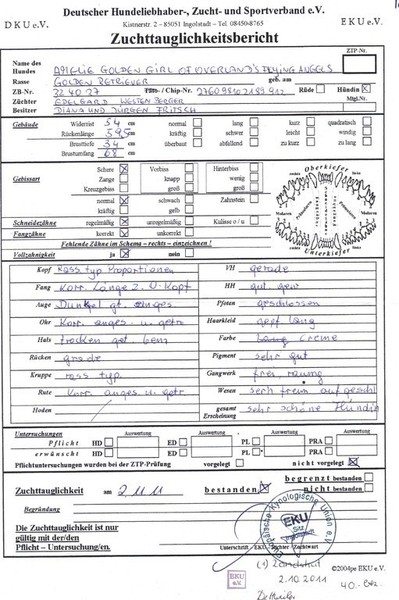 Deutscher Hundeliebhaber-, Zucht- und Sportverband e.V.
D K U e.V.
Kistnerstr. 2 – 85051 Ingolstadt – Tel. 08450-8765
E K U e.V.
Zuchttauglichkeitsbericht
ZTP-Nr.
Name des Hundes AMELIE GOLDEN GIRL OF OVERLAND'S FLYING ANGELS
Rasse GOLDEN RETRIEVER gew. am
ZB-Nr. Täto- / Chip-Nr. Rüde Hündin X
Züchter EDELGARD
Mtgl.Nr.
Besitzer DIANA UND JÜRGEN FRITSCH
Gebäude Widerrist 54 cm normal lang kurz quadratisch
Rückenlänge 59,5 cm kräftig schwer leicht windig
Brusttiefe 34 cm überbaut abfallend zu kurz zu lang
Brustumfang 68 cm
Gebissart Schere X Vorbiss Hinterbiss
Zange knapp wenig
Kreuzgebiss groß groß
normal X schwach Zahnstein
kräftig gelb
Schneidezähne regelmäßig X unregelmäßig Kulisse o / u
Fangzähne korrekt X unkorrekt
Oberkiefer
Molaren Prämolaren Prämolaren Molaren
Unterkiefer
Fehlende Zähne im Schema – rechts – einzeichnen !
Vollzahnigkeit ja X nein
Kopf rass. typ. Proportionen
VH gerade
Fang Korr. Länge z. O-Kopf
HH gut gew
Auge Dunkel gt.
Pfoten geschlossen
Ohr Korr. anges. u. getr.
Haarkleid lang
Hals trocken gt. bem
Farbe creme
Rücken grade
Pigment sehr gut
Kruppe rass typ.
Gangwerk frei, raumg
Rute Korr. anges u. getr.
Wesen sehr freun aufgeschl
Hoden
gesamt Erscheinung sehr schöne Hündin
Untersuchungen Auswertung Auswertung Auswertung Auswertung
Pflicht HD ED PL PRA
erwünscht HD ED PL PRA
Pflichtuntersuchungen wurden bei der ZTP-Prüfung vorgelegt nicht vorgelegt X
Zuchttauglichkeit am 2.11.11 bestanden X begrenzt bestanden
nicht bestanden
Begründung
Die Zuchttauglichkeit ist nur
gültig mit der/den
Pflicht – Untersuchung/en.
Europäische Kynologische Union e.V.
EKU
Sitz
Ingolstadt
Unterschrift – EKU – Richter / Zuchtwart
EKU e.V.
2.10.2011
40.-
©2004pe EKU e.V.